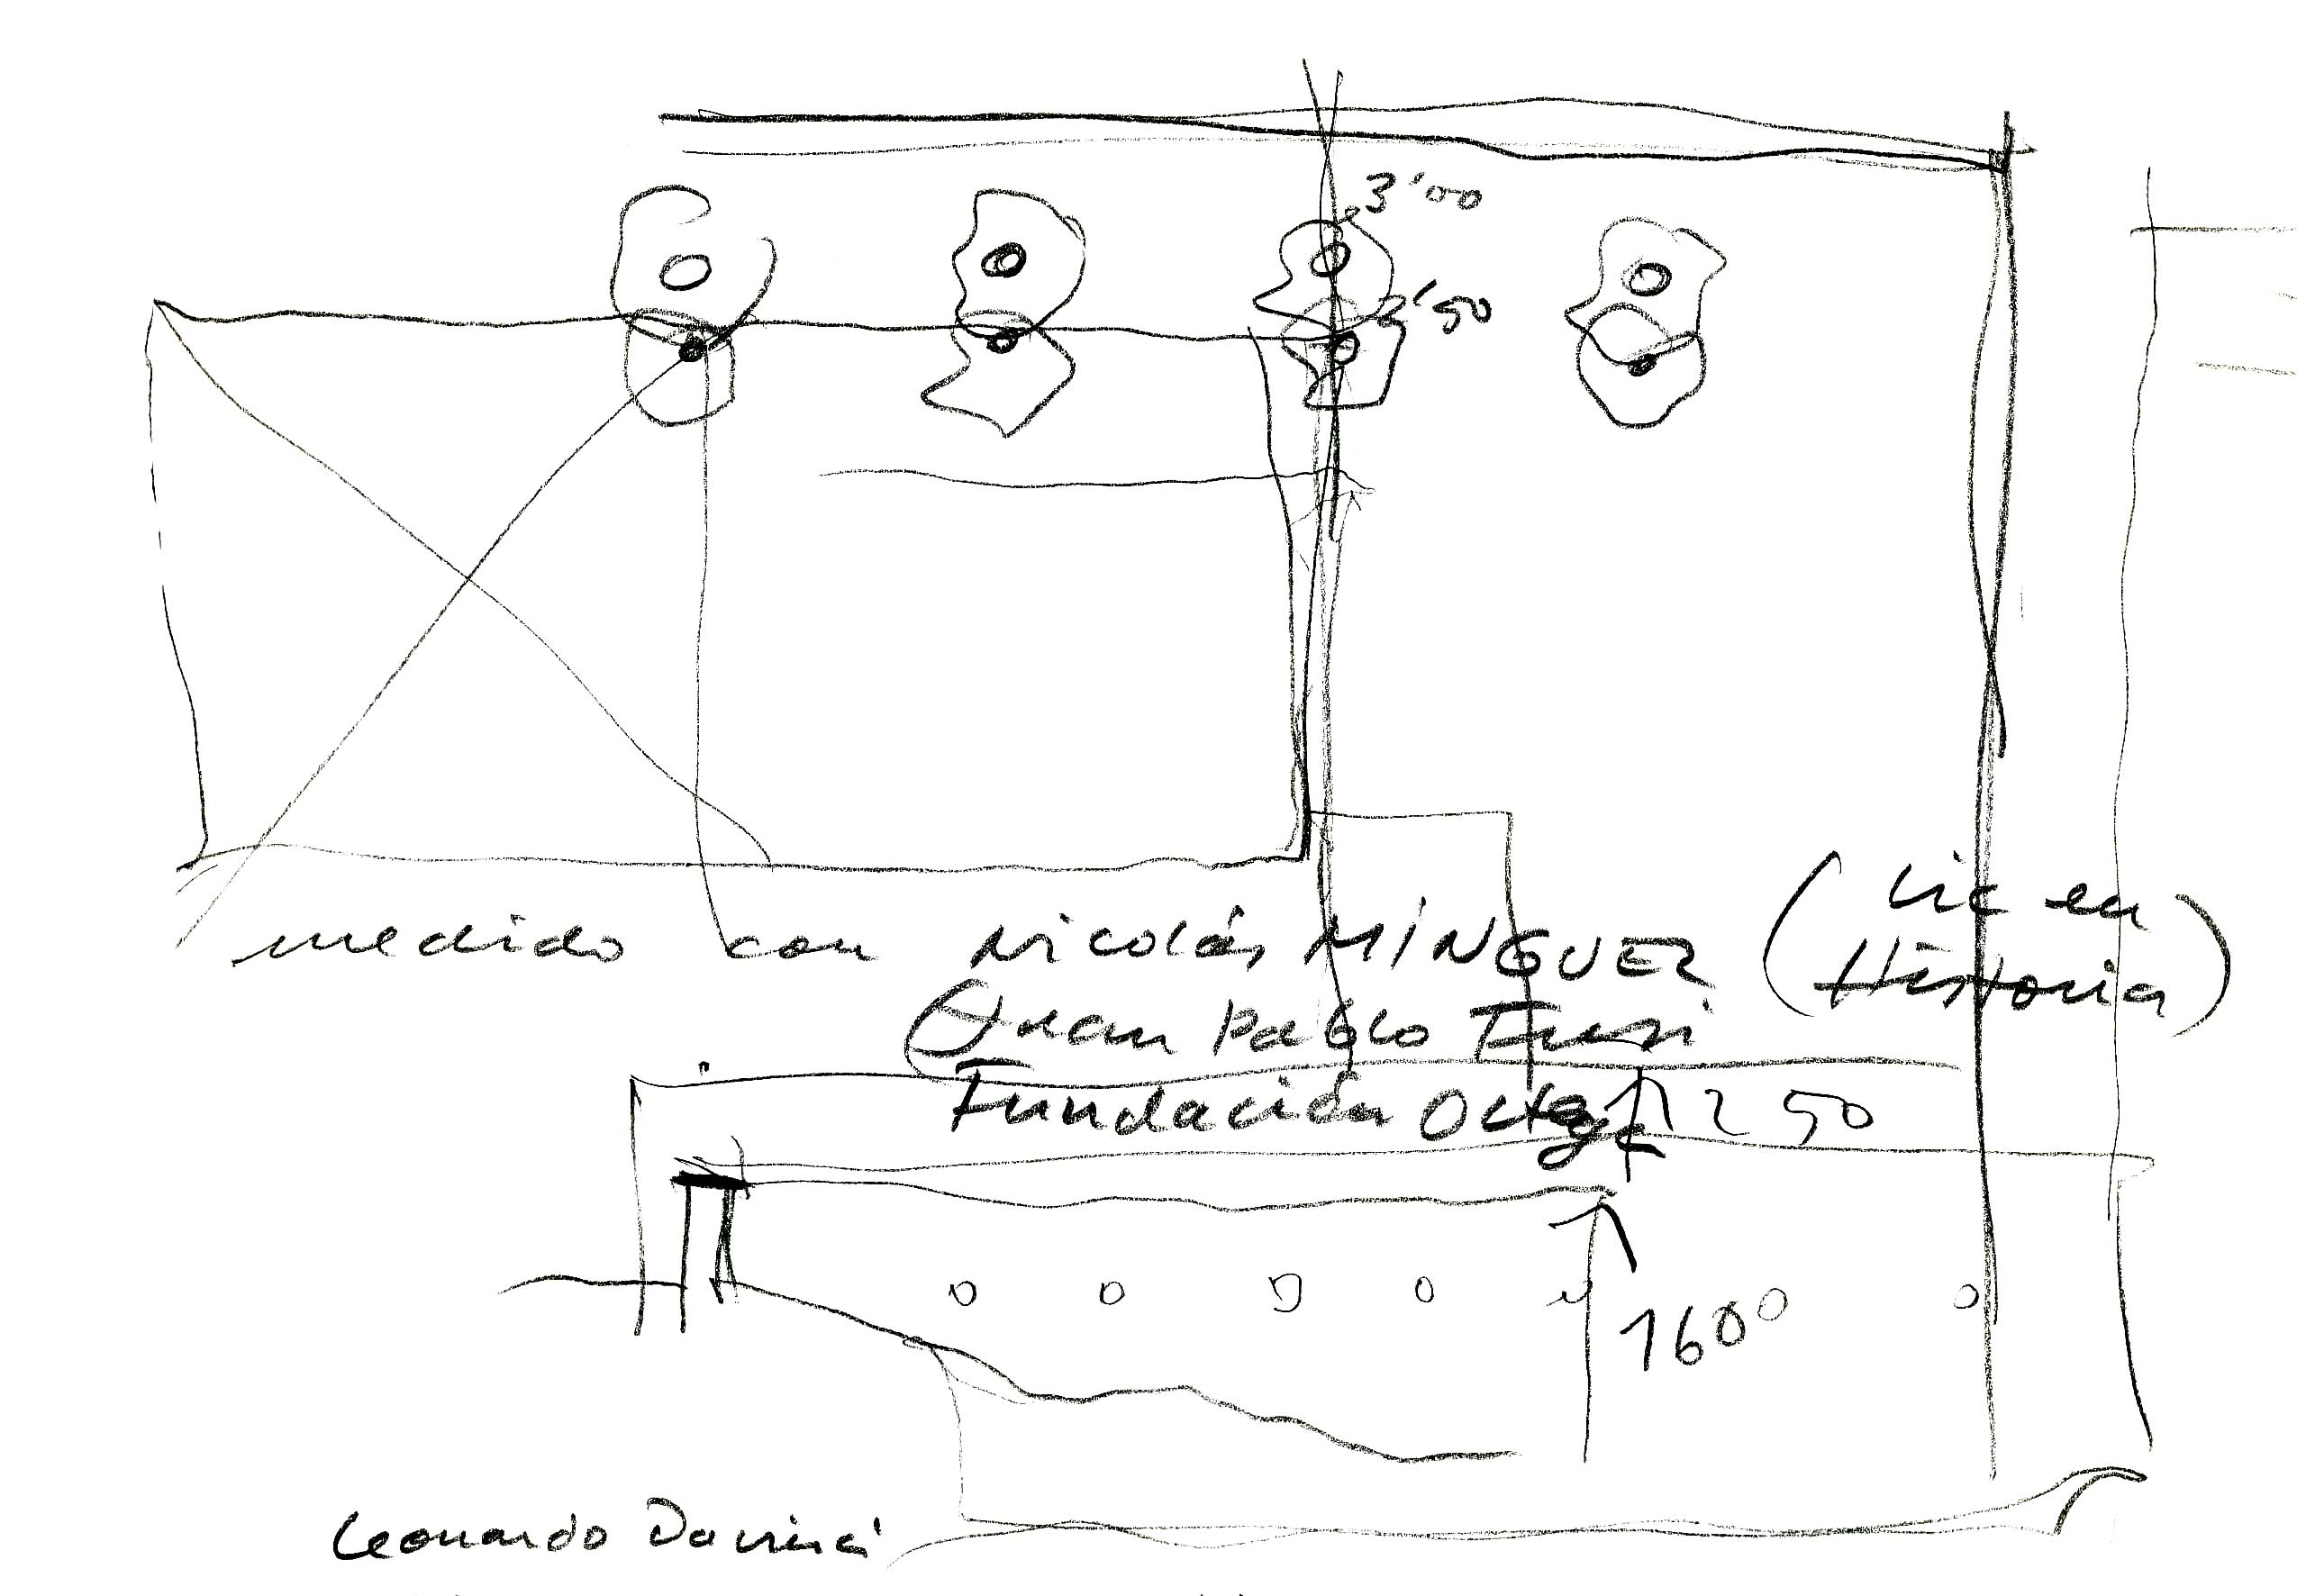 3'00
2'50
medido con Nicolás MÍNGUEZ (Lic en
Historia)
(Juan Pablo Fusi
Fundación Ortega
250
160
Leonardo Davinci